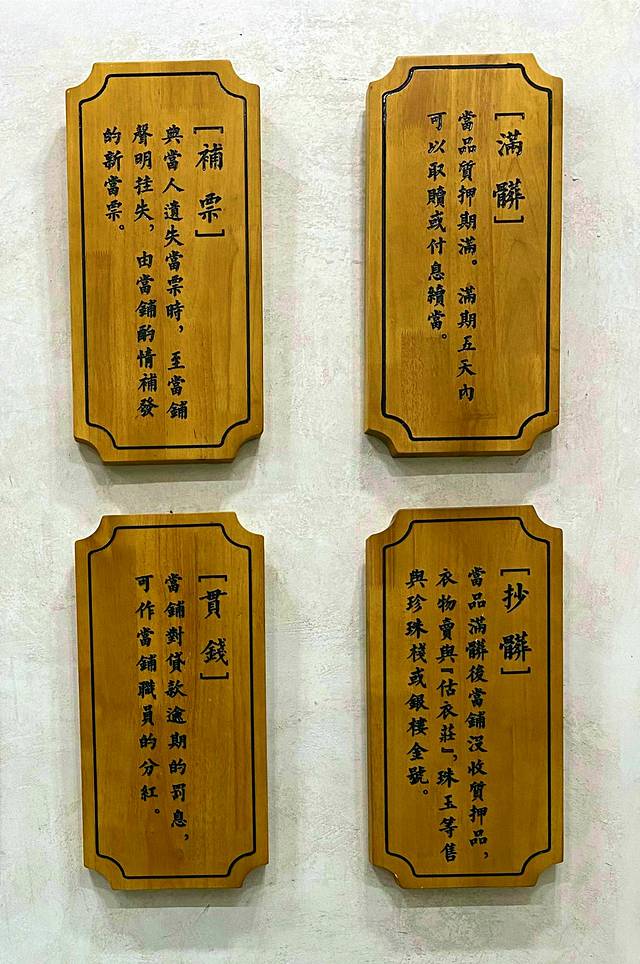 [滿髒]
當品質押期滿。滿期五天內
可以取贖或付息續當。
[補票]
與當人遺失當票時，至當鋪
聲明挂失，由當鋪酌情補發
的新當票。
[抄髒]
當品滿髒後當鋪沒收質押品，
衣物賣與『估衣莊』，珠玉等售
與珍珠棧或銀樓金號。
[貫錢]
當鋪對貸款逾期的罰息，
可作當鋪職員的分紅。